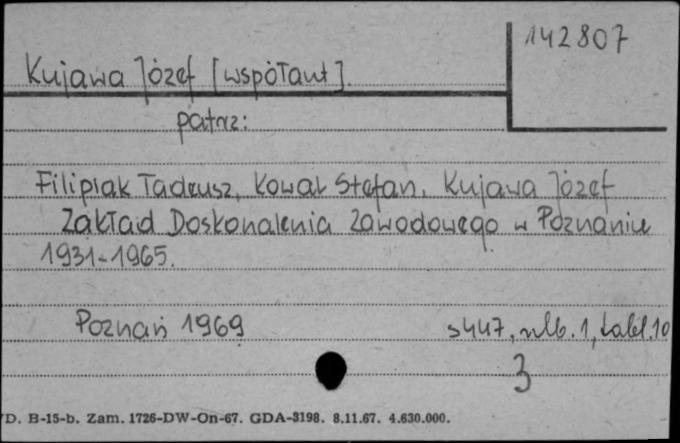 142807
Kujawa Józef [współaut].
patrz:
Filipiak Tadeusz, Kował Stefan, Kujawa Józef
Zakład Doskonalenia Zawodowego w Poznaniu
1931-1965.
Poznań 1969 s447, nlb. 1, tabl. 10
3
D. B-15-b. Zam. 1726-DW-On-67. GDA-3198. 8.11.67. 4.630.000.